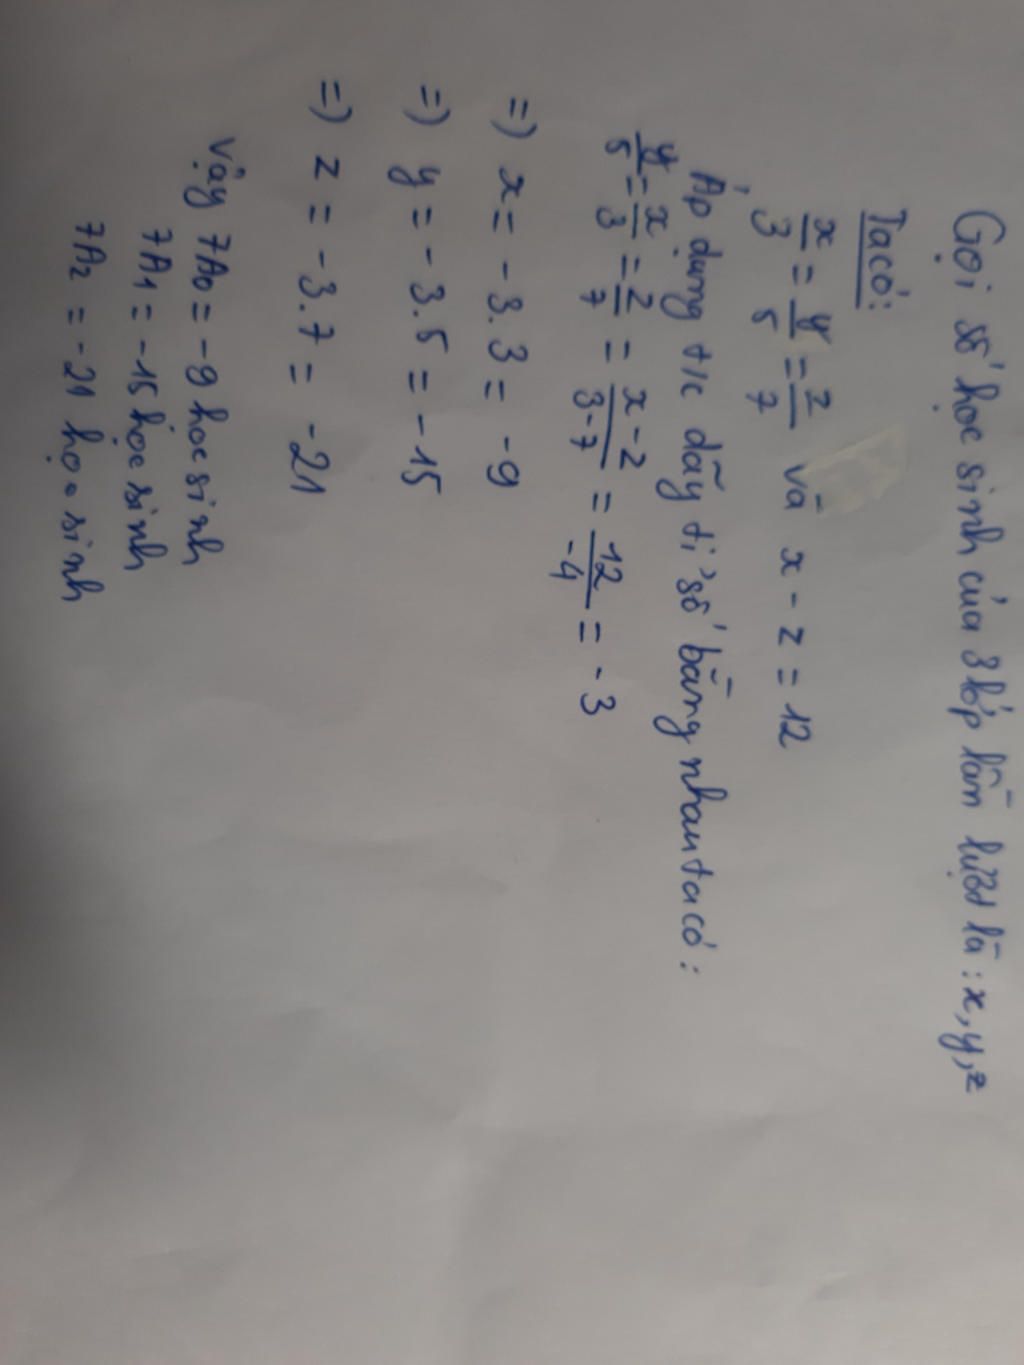 Gọi số học sinh của 3 lớp lần lượt là : x, y, z
Ta có:
x/3 = y/5 = z/7 và x - z = 12
Áp dụng t/c dãy tỉ số bằng nhau ta có :
y/5 = x/3 = z/7 = x-z/3-7 = 12/-4 = -3
=) x = -3.3 = -9
=) y = -3.5 = -15
=) z = -3.7 = -21
Vậy 7A0 = -9 học sinh
7A1 = -15 học sinh
7A2 = -21 học sinh